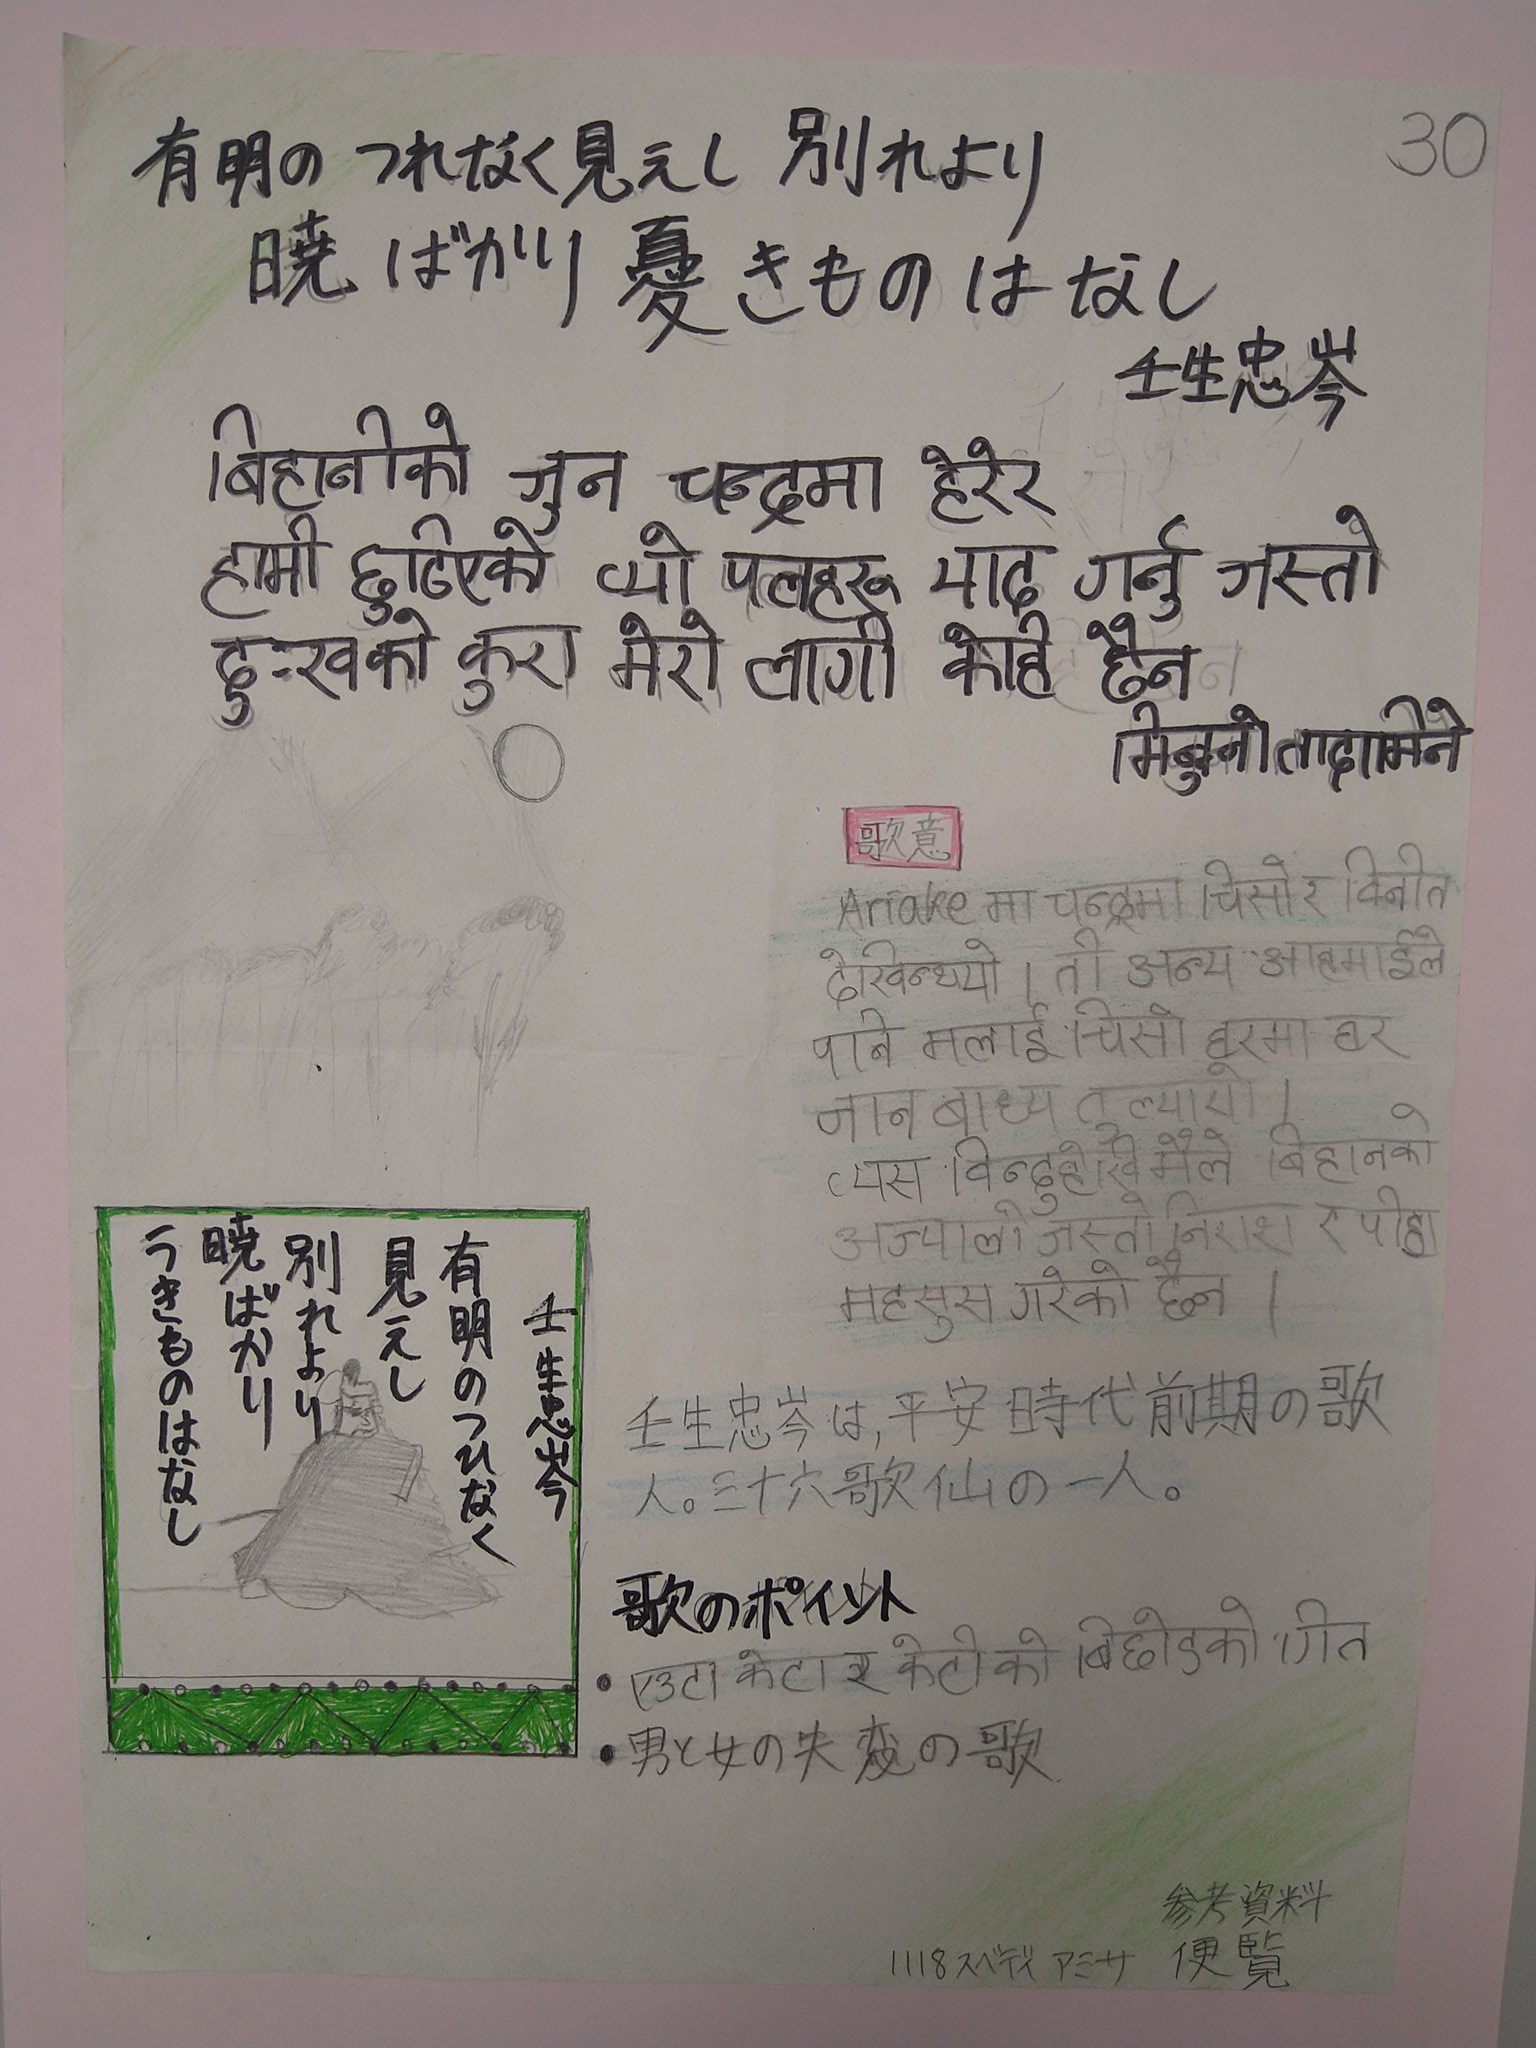 30
有明の つれなく見えし 別れより
暁 ばかり 憂きものはなし
壬生忠岑
बिहानीको जुन चन्द्रमा हेरेर
हामी छुटिएको त्यो पलहरू याद गर्नु जस्तो
दुःखको कुरा मेरो लागी केहि छैन
मिबुनो तादामिने
歌意
Ariake मा चन्द्रमा चिसो र विनीत
देखिन्थ्यो । ती अन्य आइमाईले
पनि मलाई चिसो घरमा घर
जान बाध्य तुल्यायो ।
त्यस विन्दुदेखि मैले बिहानको
उज्यालो जस्तो निराश र पीडा
महसुस गरेको छैन ।
壬生忠岑は,平安時代前期の歌
人。三十六歌仙の一人。
歌のポイント
• एउटा केटा र केटीको बिछोडको गीत
• 男と女の失恋の歌
壬生忠岑
有明のつれなく
見えし
別れより
暁ばかり
うきものはなし
参考資料
便覧
1118 スベディ アミサ